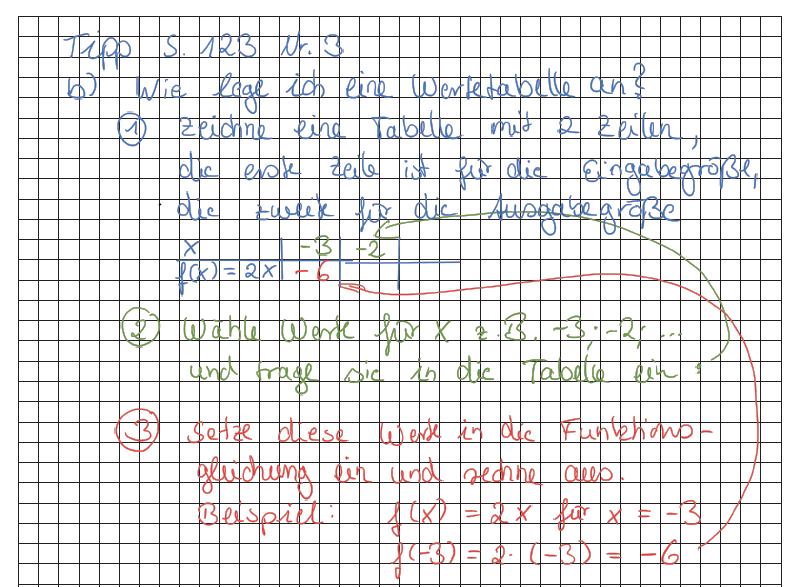 Tipp S. 123 Nr. 3
b) Wie lege ich eine Wertetabelle an?
① Zeichne eine Tabelle mit 2 Zeilen,
die erste Zeile ist für die Eingabegröße,
die zweite für die Ausgabegröße
x | -3 | -2 |
f(x) = 2x | -6 |
② Wähle Werte für x z.B. -3; -2; ...
und trage sie in die Tabelle ein.
③ Setze diese Werte in die Funktions-
gleichung ein und rechne aus.
Beispiel: f(x) = 2x für x = -3
f(-3) = 2·(-3) = -6